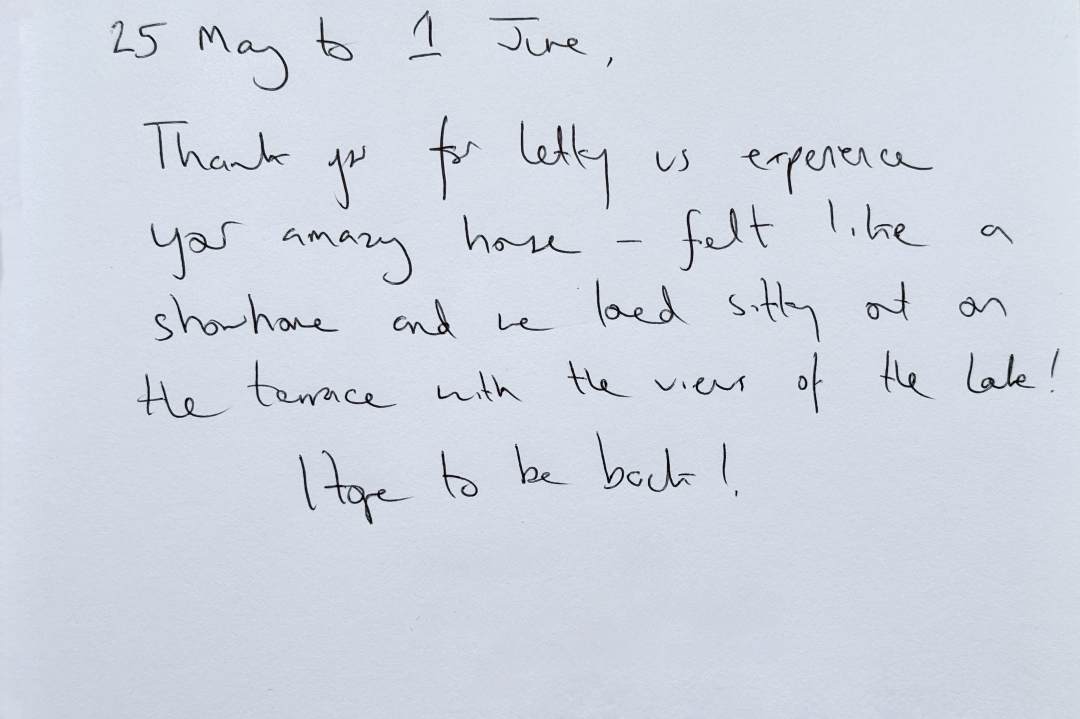 25 May to 1 June,
Thank you for letting us experience
your amazing house - felt like a
showhome and we loved sitting out on
the terrace with the views of the lake!
Hope to be back!